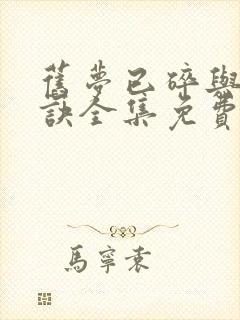 舊夢已碎與
訣全集免費
馬寧袁